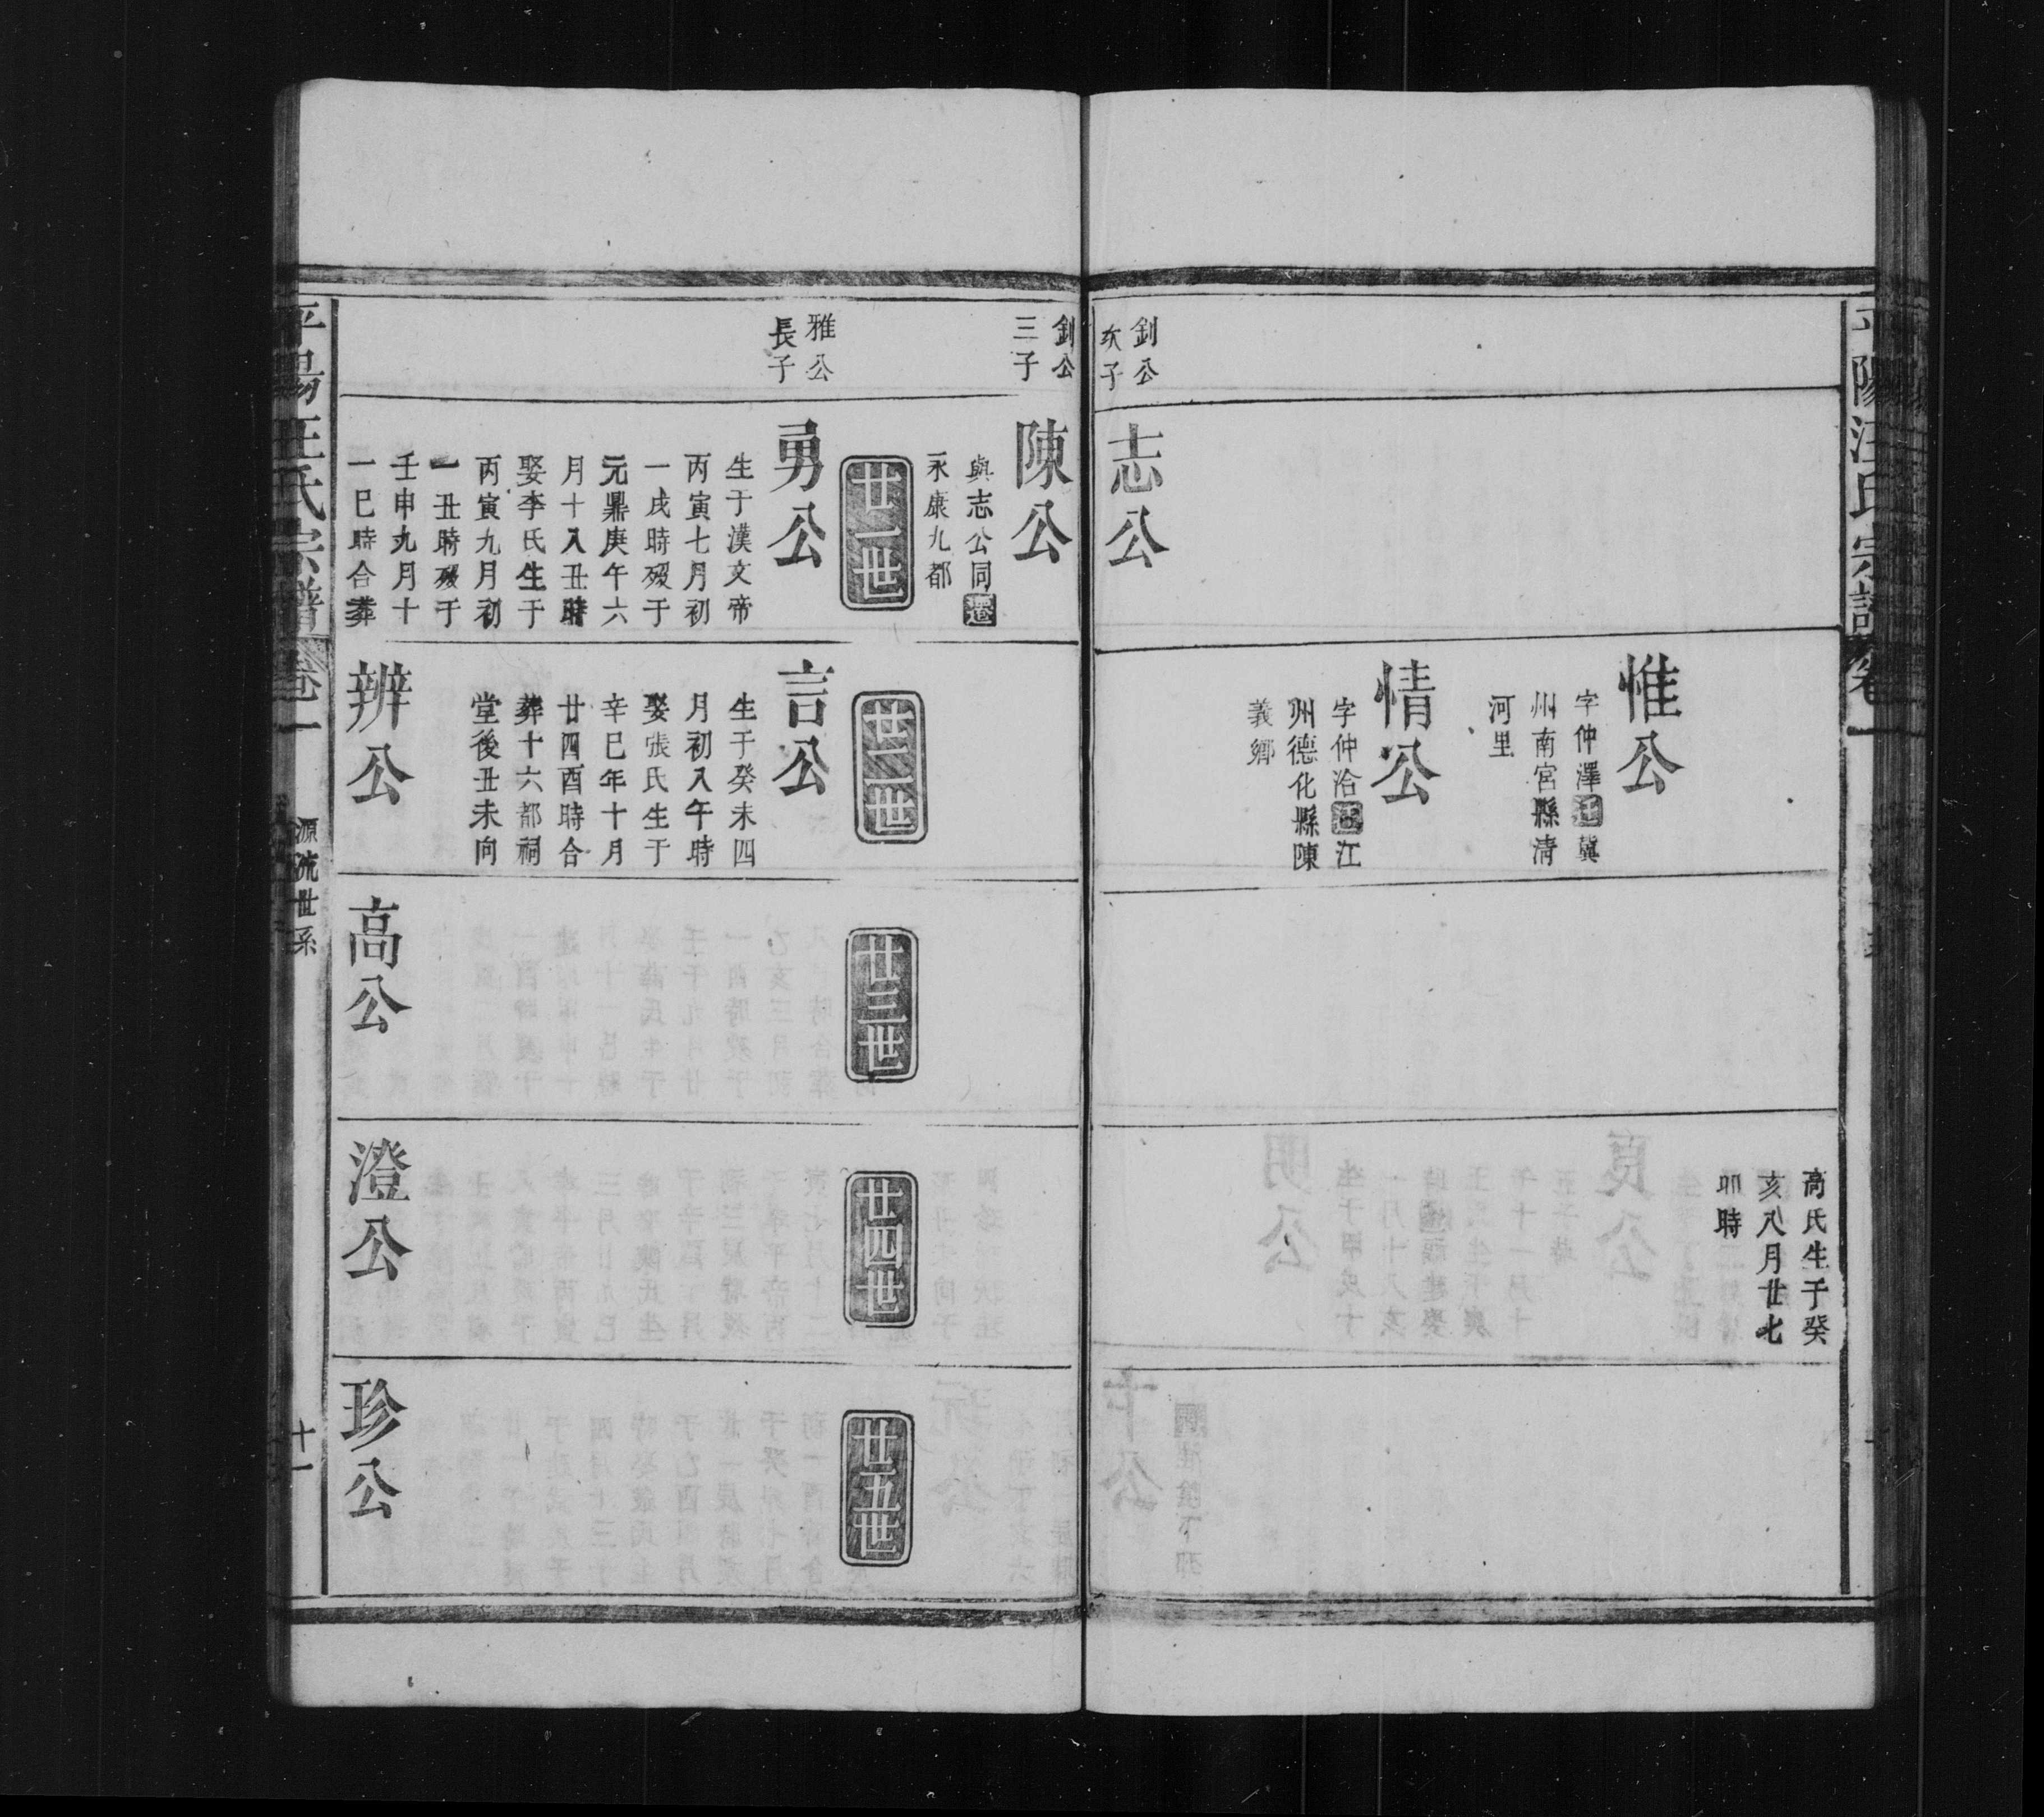 平陽汪氏宗譜
卷一
釗公
次子
志公
惟公
字仲澤遷冀
州南宮縣清
河里
情公
字仲洽遷江
州德化縣陳
義鄉
高氏生于癸
亥八月廿七
卯時
釗公
三子
陳公
與志公同遷
永康九都
雅公
長子
廿一世
勇公
生于漢文帝
丙寅七月初
一戌時歿于
元鼎庚午六
月十八丑時
娶李氏生于
丙寅九月初
一丑時歿于
壬申九月十
一巳時合葬
廿二世
言公
生于癸未四
月初八午時
娶張氏生于
辛巳年十月
廿四酉時合
葬十六都祠
堂後丑未向
辨公
廿三世
高公
廿四世
澄公
廿五世
珍公
平陽汪氏宗譜
卷一
源流世系
十一